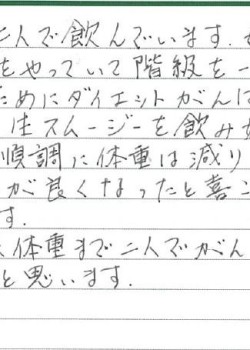 二人で飲んでいます。
をやっていて階級を一
ためにダイエットがんに
、生スムージーを飲み
順調に体重は減り
が良くなったと喜こ
す。
体重まで二人でがん
と思います。